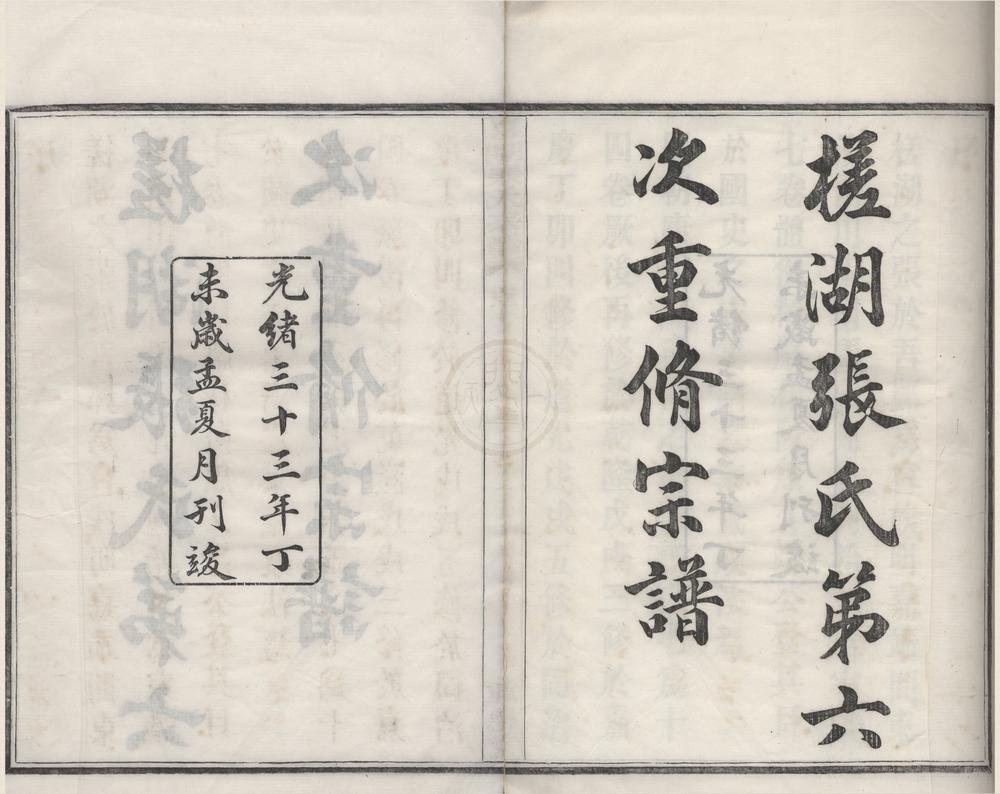 槎湖張氏第六
次重脩宗譜
光緒三十三年丁
未歲孟夏月刊竣